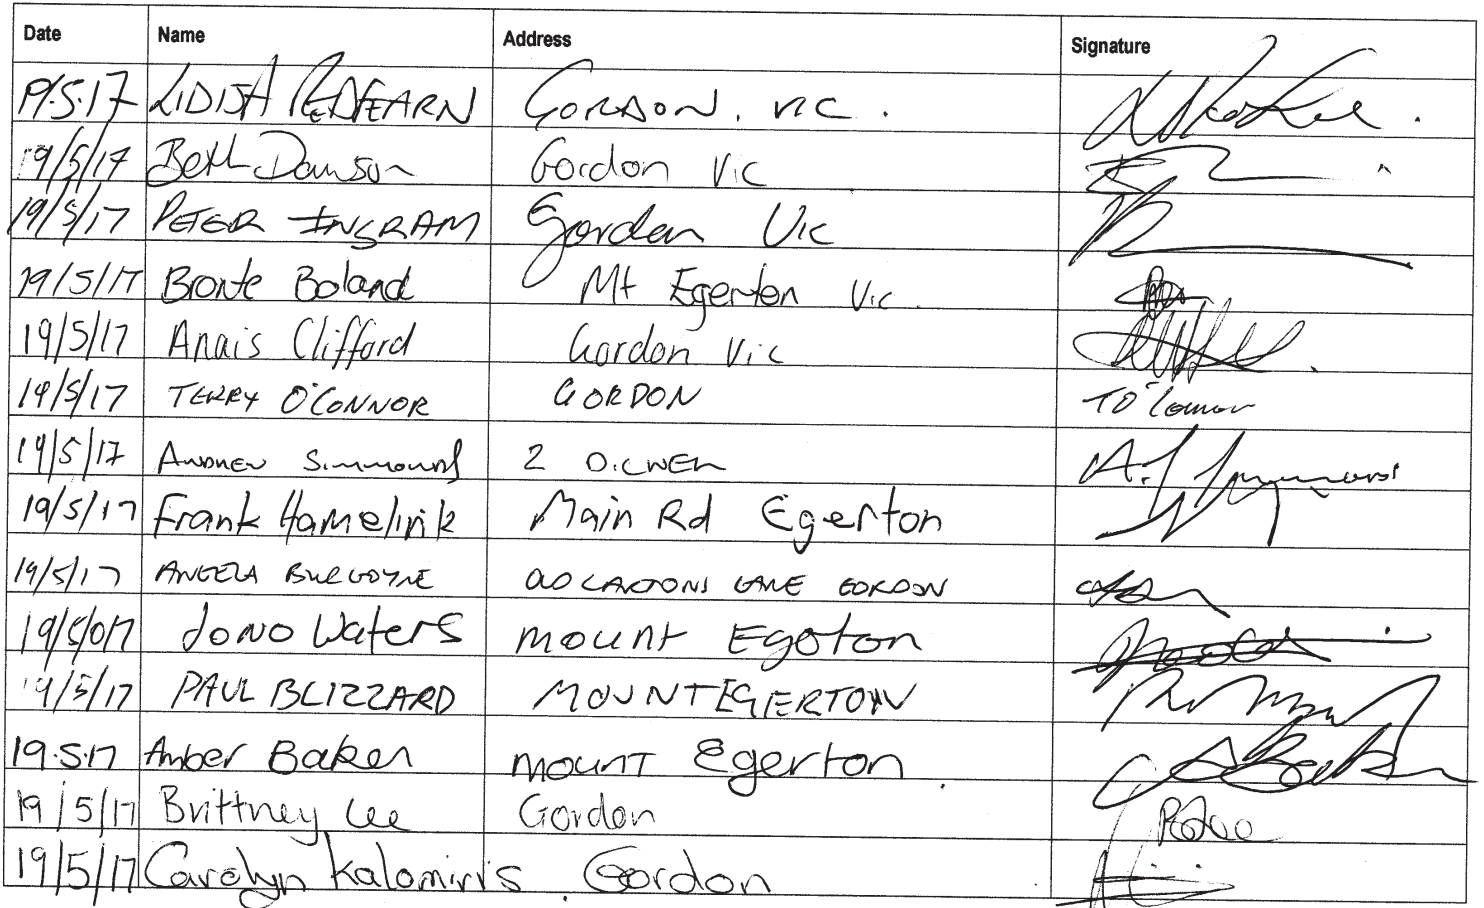 Date Name Address Signature
19.5.17 LIDIJA REDFEARN GORDON. VIC.
19/5/17 Beth Dawson Gordon Vic
19/5/17 PETER INGRAM Gordon Vic
19/5/17 Bronte Boland Mt Egerton Vic.
19/5/17 Anais Clifford Gordon Vic
19/5/17 TERRY O'CONNOR GORDON TO'Connor
19/5/17 ANDREW Simmonds 2
19/5/17 Frank Hamelink Main Rd Egerton
19/5/17 ANGELA BURGOYNE LANE GORDON
19/5/017 Jono Waters mount Egeton
19/5/17 PAUL BLIZZARD MOUNT EGERTON
19.5.17 Amber Baker mount Egerton
19/5/17 Brittney Lee Gordon
19/5/17 Carolyn Kalomiris Gordon